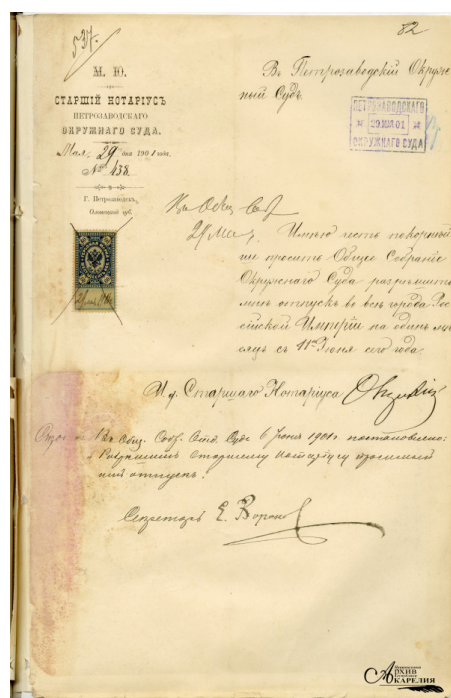 82
537.
М. Ю.
СТАРШІЙ НОТАРІУСЪ
ПЕТРОЗАВОДСКАГО
ОКРУЖНАГО СУДА.
Мая, 29 дня 1901 года.
№ 438.
Г. Петрозаводскъ,
Олонецкой губ.
Въ Петрозаводскій Окруж-
ный Судъ.
ПЕТРОЗАВОДСКАГО
29 МАЯ 01
ОКРУЖНАГО СУДА
29 Мая.
Имѣю честь покорнѣй-
ше просить Общее Собраніе
Окружнаго Суда разрѣшить
мнѣ отпускъ во всѣ города Рос-
сійской Имперіи на одинъ мѣ-
сяцъ съ 11 Іюня сего года.
И. д. Старшаго Нотаріуса
Въ Общ. Собр. Отд. Суда 6 Іюня 1901 г. постановлено:
Разрѣшить старшему нотаріусу просимый
имъ отпускъ.
Секретарь Е. Воронов
Национальный
АРХИВ
Республики
КАРЕЛИЯ